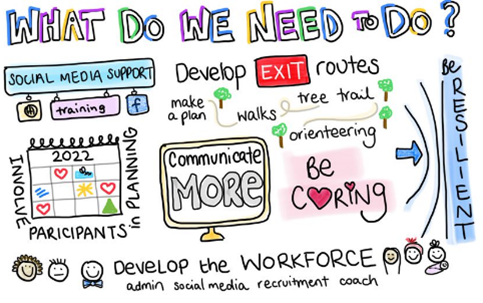 WHAT DO WE NEED TO DO?
SOCIAL MEDIA SUPPORT
training
f
Develop EXIT routes
make
a plan
walks
tree trail
orienteering
Be
RESILIENT
INVOLVE
2022
PARICIPANTS
in PLANNING
Communicate
MORE
Be
CARING
DEVELOP the WORKFORCE
admin social media recruitment coach